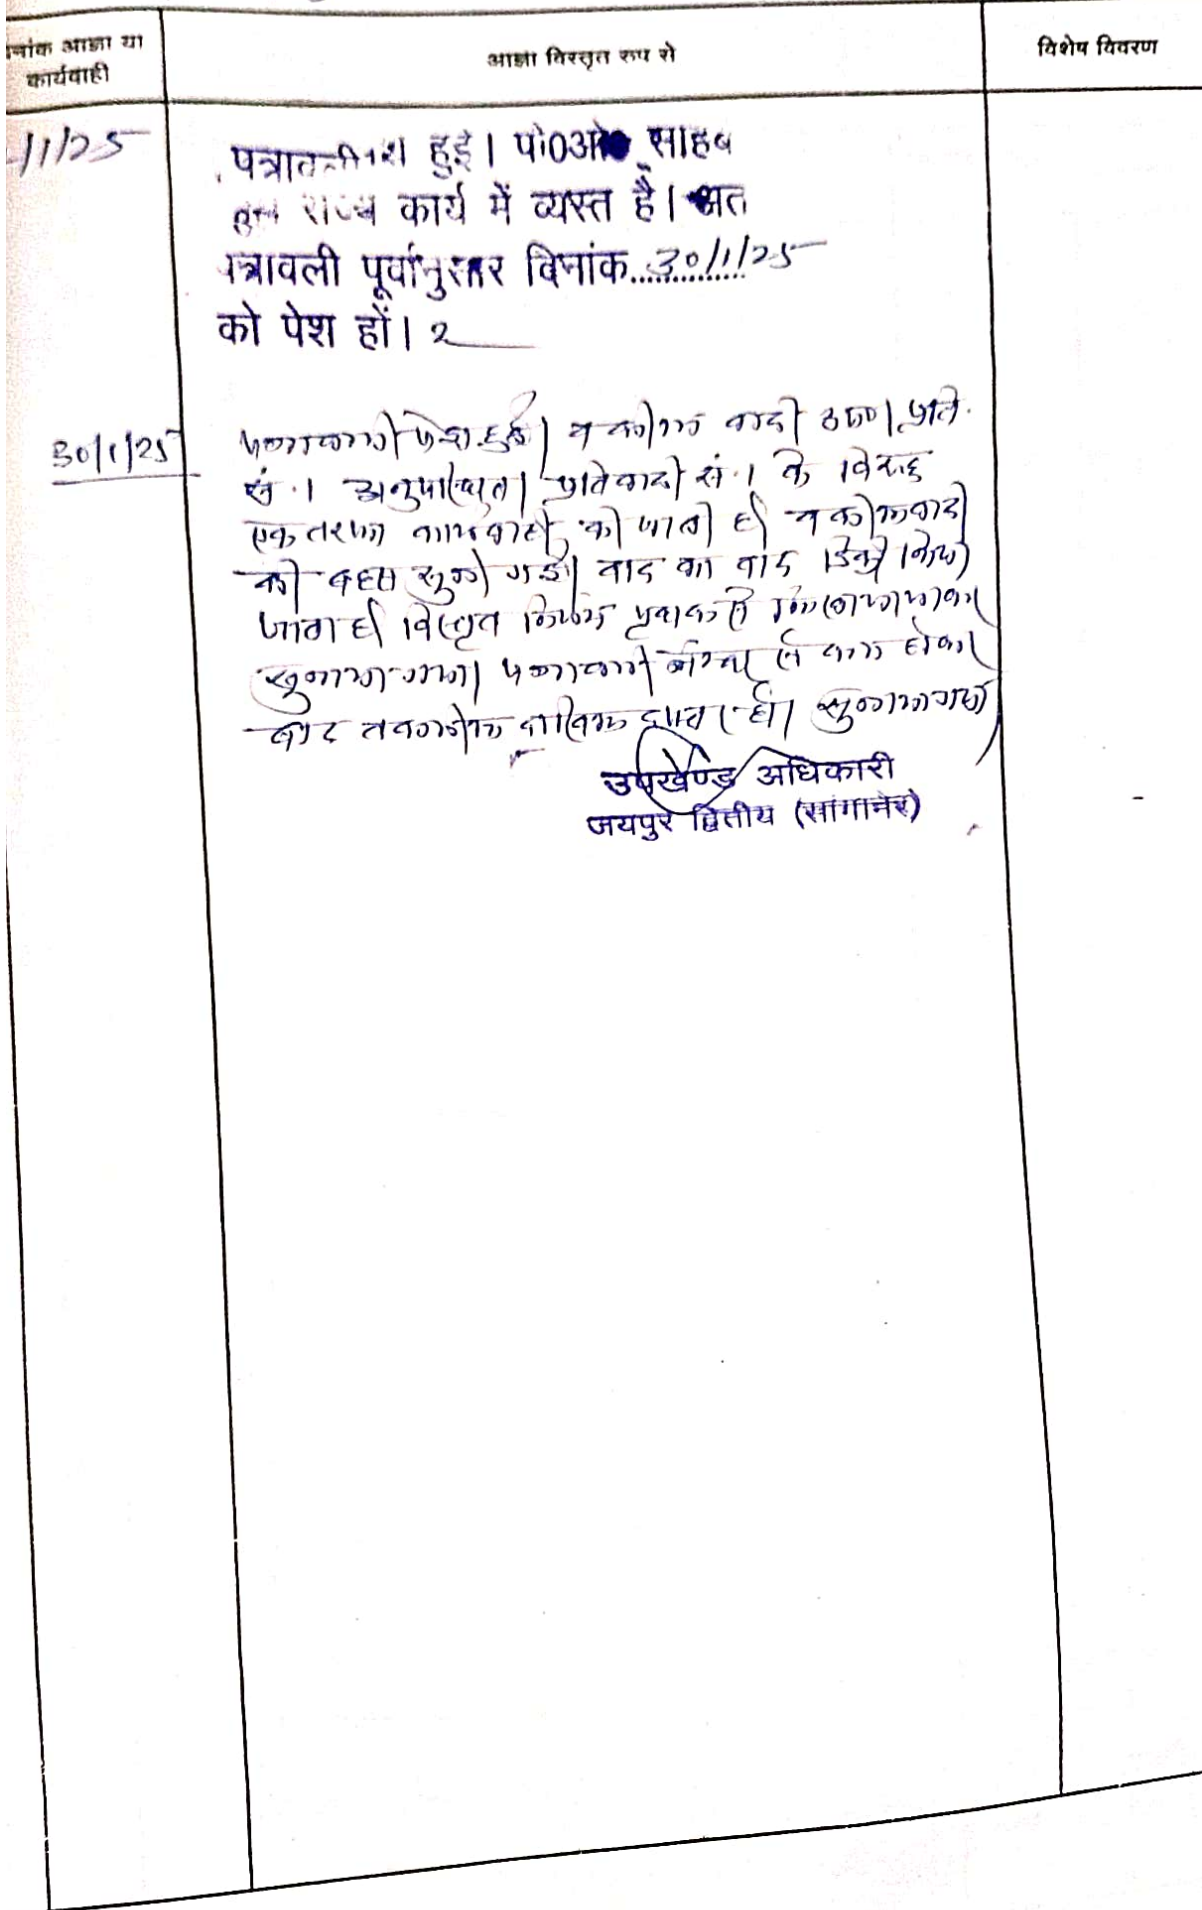 दिनांक आज्ञा या
कार्यवाही
आज्ञा विस्तृत रुप से
विशेष विवरण
/1/25
पत्रावली पेश हुई। पी0ओ0 साहब
राज्य कार्य में व्यस्त है। अत
पत्रावली पूर्वानुसार दिनांक 30/1/25
को पेश हों।
30/1/25
पत्रावली पेश हुई। वकील वादी उप०। प्रति.
सं. 1 अनुपस्थित। प्रतिवादी सं. 1 के विरुद्ध
एक तरफा कार्यवाही की जाती है। वकील वादी
की बहस सुनी गई। वाद का वाद डिक्री किया
जाता है। विस्तृत निर्णय पृथक से लिखाया जाकर
सुनाया गया। पत्रावली नम्बर से कम होकर
बाद तकमील दाखिल दफ्तर हो। सुनाया गया
उपखण्ड अधिकारी
जयपुर द्वितीय (सांगानेर)